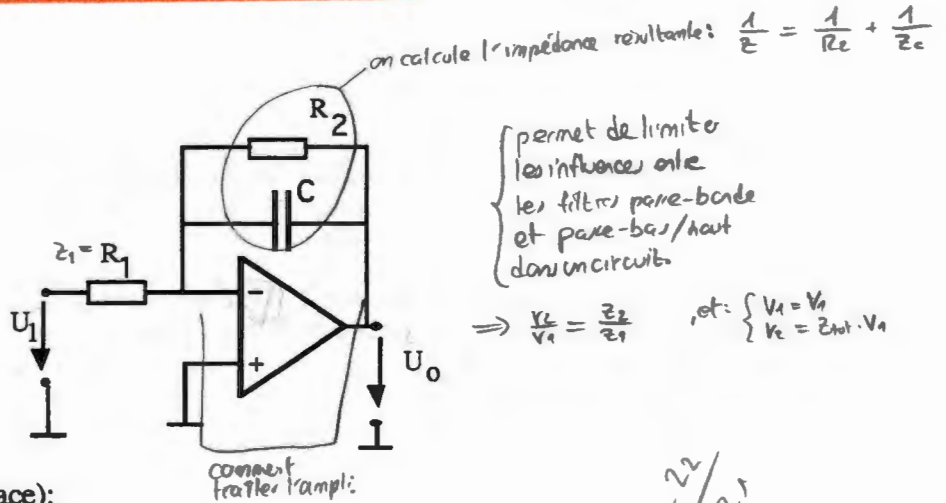 on calcule l'impédance resultante: 1/Z = 1/R2 + 1/Zc
R2
C
permet de limiter
les influences entre
les filtres passe-bande
et passe-bas/haut
dans un circuit.
Z1 = R1
U1
-
+
Uo
=> V2/V1 = Z2/Z1 , et: { V1 = V1
V2 = Ztot · V1
comment
traiter l'ampli:
ace):